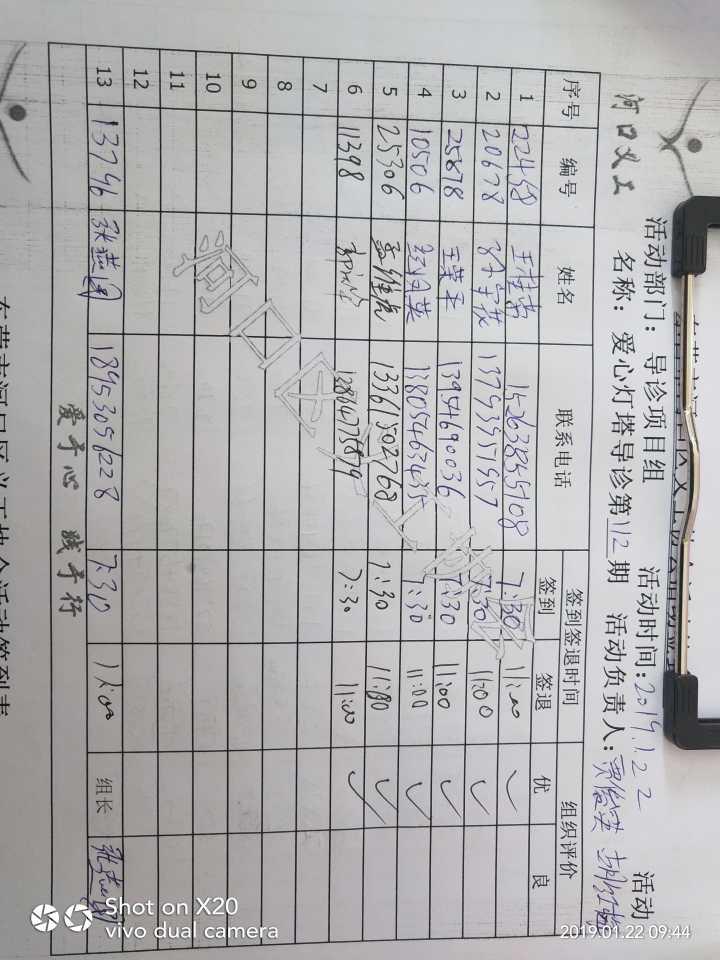 河口义工
活动部门：导诊项目组 活动时间：2019.1.22 活动
名称：爱心灯塔导诊第112期 活动负责人：贾俊英
序号 编号 姓名 联系电话 签到签退时间 组织评价
签到 签退 优 良
1 22458 15263855108 7:30 11:00 ✓
2 20678 13793957957 7:30 11:00 ✓
3 25878 王荣圣 13954690036 7:30 11:00 ✓
4 10506 赵月英 13805463435 7:30 11:00 ✓
5 25306 孟维虎 13361502768 7:30 11:00 ✓
6 11398 13864775879 7:30 11:00 ✓
7
8
9
10
11
12
13 13746 张燕阁 18953051228 7:30 11:00 组长
爱于心 践于行
东营市河口区义工协会活动签到表
河口区义工协会
Shot on X20
vivo dual camera
2019.01.22 09:44